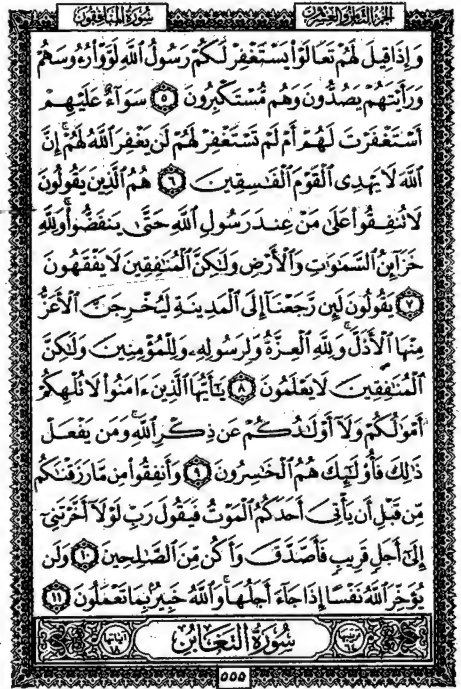 الجزء الثامن والعشرون
سورة المنافقون
وَإِذَا قِيلَ لَهُمْ تَعَالَوْا۟ يَسْتَغْفِرْ لَكُمْ رَسُولُ ٱللَّهِ لَوَّوْا۟ رُءُوسَهُمْ
وَرَأَيْتَهُمْ يَصُدُّونَ وَهُم مُّسْتَكْبِرُونَ ٥ سَوَآءٌ عَلَيْهِمْ
أَسْتَغْفَرْتَ لَهُمْ أَمْ لَمْ تَسْتَغْفِرْ لَهُمْ لَن يَغْفِرَ ٱللَّهُ لَهُمْ ۚ إِنَّ
ٱللَّهَ لَا يَهْدِى ٱلْقَوْمَ ٱلْفَـٰسِقِينَ ٦ هُمُ ٱلَّذِينَ يَقُولُونَ
لَا تُنفِقُوا۟ عَلَىٰ مَنْ عِندَ رَسُولِ ٱللَّهِ حَتَّىٰ يَنفَضُّوا۟ ۗ وَلِلَّهِ
خَزَآئِنُ ٱلسَّمَـٰوَٰتِ وَٱلْأَرْضِ وَلَـٰكِنَّ ٱلْمُنَـٰفِقِينَ لَا يَفْقَهُونَ
٧ يَقُولُونَ لَئِن رَّجَعْنَآ إِلَى ٱلْمَدِينَةِ لَيُخْرِجَنَّ ٱلْأَعَزُّ
مِنْهَا ٱلْأَذَلَّ ۚ وَلِلَّهِ ٱلْعِزَّةُ وَلِرَسُولِهِۦ وَلِلْمُؤْمِنِينَ وَلَـٰكِنَّ
ٱلْمُنَـٰفِقِينَ لَا يَعْلَمُونَ ٨ يَـٰٓأَيُّهَا ٱلَّذِينَ ءَامَنُوا۟ لَا تُلْهِكُمْ
أَمْوَٰلُكُمْ وَلَآ أَوْلَـٰدُكُمْ عَن ذِكْرِ ٱللَّهِ ۚ وَمَن يَفْعَلْ
ذَٰلِكَ فَأُو۟لَـٰٓئِكَ هُمُ ٱلْخَـٰسِرُونَ ٩ وَأَنفِقُوا۟ مِن مَّا رَزَقْنَـٰكُم
مِّن قَبْلِ أَن يَأْتِىَ أَحَدَكُمُ ٱلْمَوْتُ فَيَقُولَ رَبِّ لَوْلَآ أَخَّرْتَنِىٓ
إِلَىٰٓ أَجَلٍ قَرِيبٍ فَأَصَّدَّقَ وَأَكُن مِّنَ ٱلصَّـٰلِحِينَ ١٠ وَلَن
يُؤَخِّرَ ٱللَّهُ نَفْسًا إِذَا جَآءَ أَجَلُهَا ۚ وَٱللَّهُ خَبِيرٌۢ بِمَا تَعْمَلُونَ ١١
ترتيبها ٦٤ سورة التغابن آياتها ١٨
٥٥٥